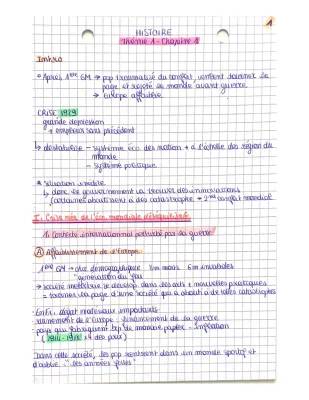 1
HISTOIRE
Thème 1 - Chapitre 1
Intro
• Après 1ère GM → pop traumatisé du conflit, veulent tourner la
page et rejeté le monde avant guerre.
→ Europe affaiblie
CRISE 1929
grande dépression
→ ampleur sans précédent
→ déstabilise - système éco des nation + à l'échelle des région du
monde
- système politique
• Situation inédite
↳ donc les gouvernement va trouver des innovations
(certaines aboutissent à des catastrophe → 2nd conflit mondiale
I. Crise née de l'éco mondiale déséquilibrée
1. Contexte international perturbé par la guerre
A Affaiblissement de l'Europe
1ère GM → choc démographique 10m morts 6m invalides
"génération du feu"
→ société meurtrie se développe dans des arts + nouvelles pratiques
= tourner la page d'une société qui a abouti à de telles catastrophes
En Fr : dégât matériaux importants
ruinement de l'Europe : financement de la guerre
pays qui fabriquent trop de monnaie papier → Inflation
(1914 - 1918 x4 des prix)
Dans cette société, les pop rentrent dans un monde sportif et
d'oublie "les années folles"